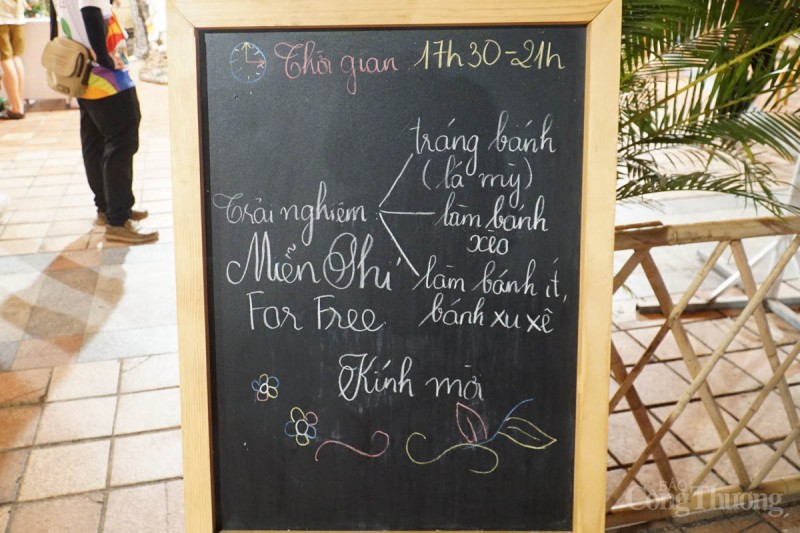 Thời gian 17h30-21h
tráng bánh
(lá mỳ)
Trải nghiệm: làm bánh
xèo
Miễn Phí làm bánh ít,
For Free bánh xu xê
Kính mời
BÁO
Công Thương